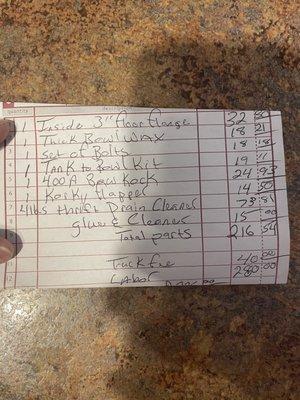 QUANTITY DESCRIPTION
1 Inside 3" Floor Flange 32 50
1 Thick Bowl Wax 18 21
1 Set of Bolts 18 18
1 Tank to Bowl Kit 19 11
1 400A 24 93
1 Korky Flapper 14 50
4 lbs Thrift Drain Cleaner 73 81
Glue & Cleaner 15 00
Total parts 216 54
Truck fee 40 00
Labor 280 00